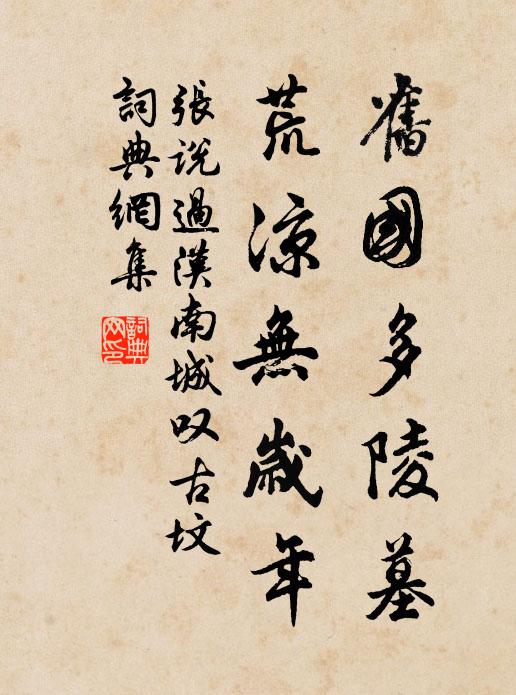 舊國多陵墓
荒凉無歲年
張説過漢南城叹古坟
詞典網集
詞典网印